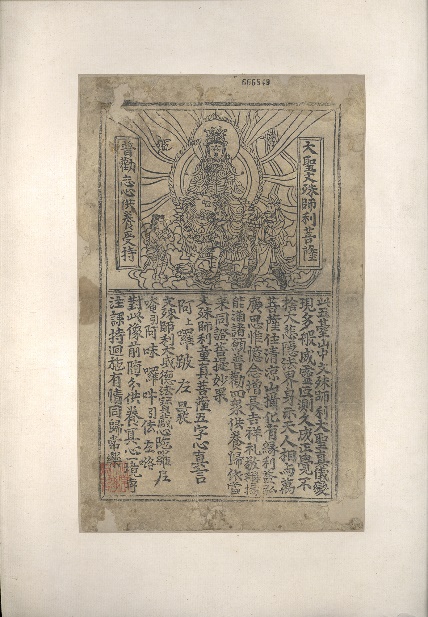 大聖文殊師利菩薩
普勸志心供養受持
此五臺山中文殊師利大聖真儀變
現多般威靈叵測久成正覺不
捨大悲隱法界身示天人相與萬
菩薩住清涼山攝化有緣利益弘
廣思惟憶念增長吉祥礼敬稱揚
能滿諸願普勸四眾供養歸依當
來同證菩提妙果
文殊師利童真菩薩五字心真言
阿上囉跛左曩
文殊師利大威德法寶藏心陁羅尼
唵引阿味囉吽引佉左咯
對此像前隨分供養冥心一境專
注課持迴施有情同歸常樂